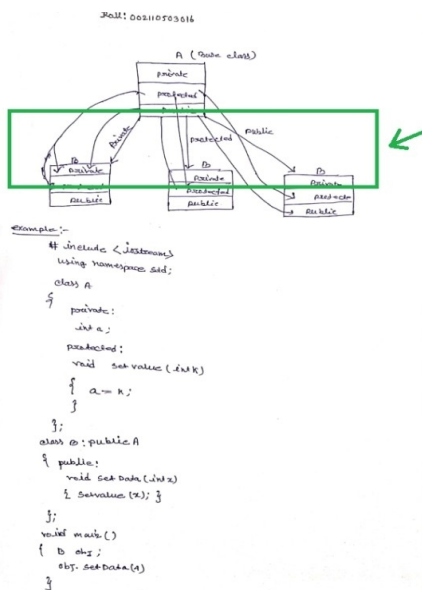 Roll: 002110503016
A (Base class)
private
protected
private
protected
public
B
private
protected
public
B
private
protected
public
B
private
protecte
public
example:-
# include <iostream>
using namespace std;
class A
{
private:
int a;
protected:
void setvalue (int k)
{ a = k;
}
};
class B: public A
{ public:
void setData (int x)
{ setvalue (x); }
};
void main ()
{ B obj;
obj. setData(4)
}